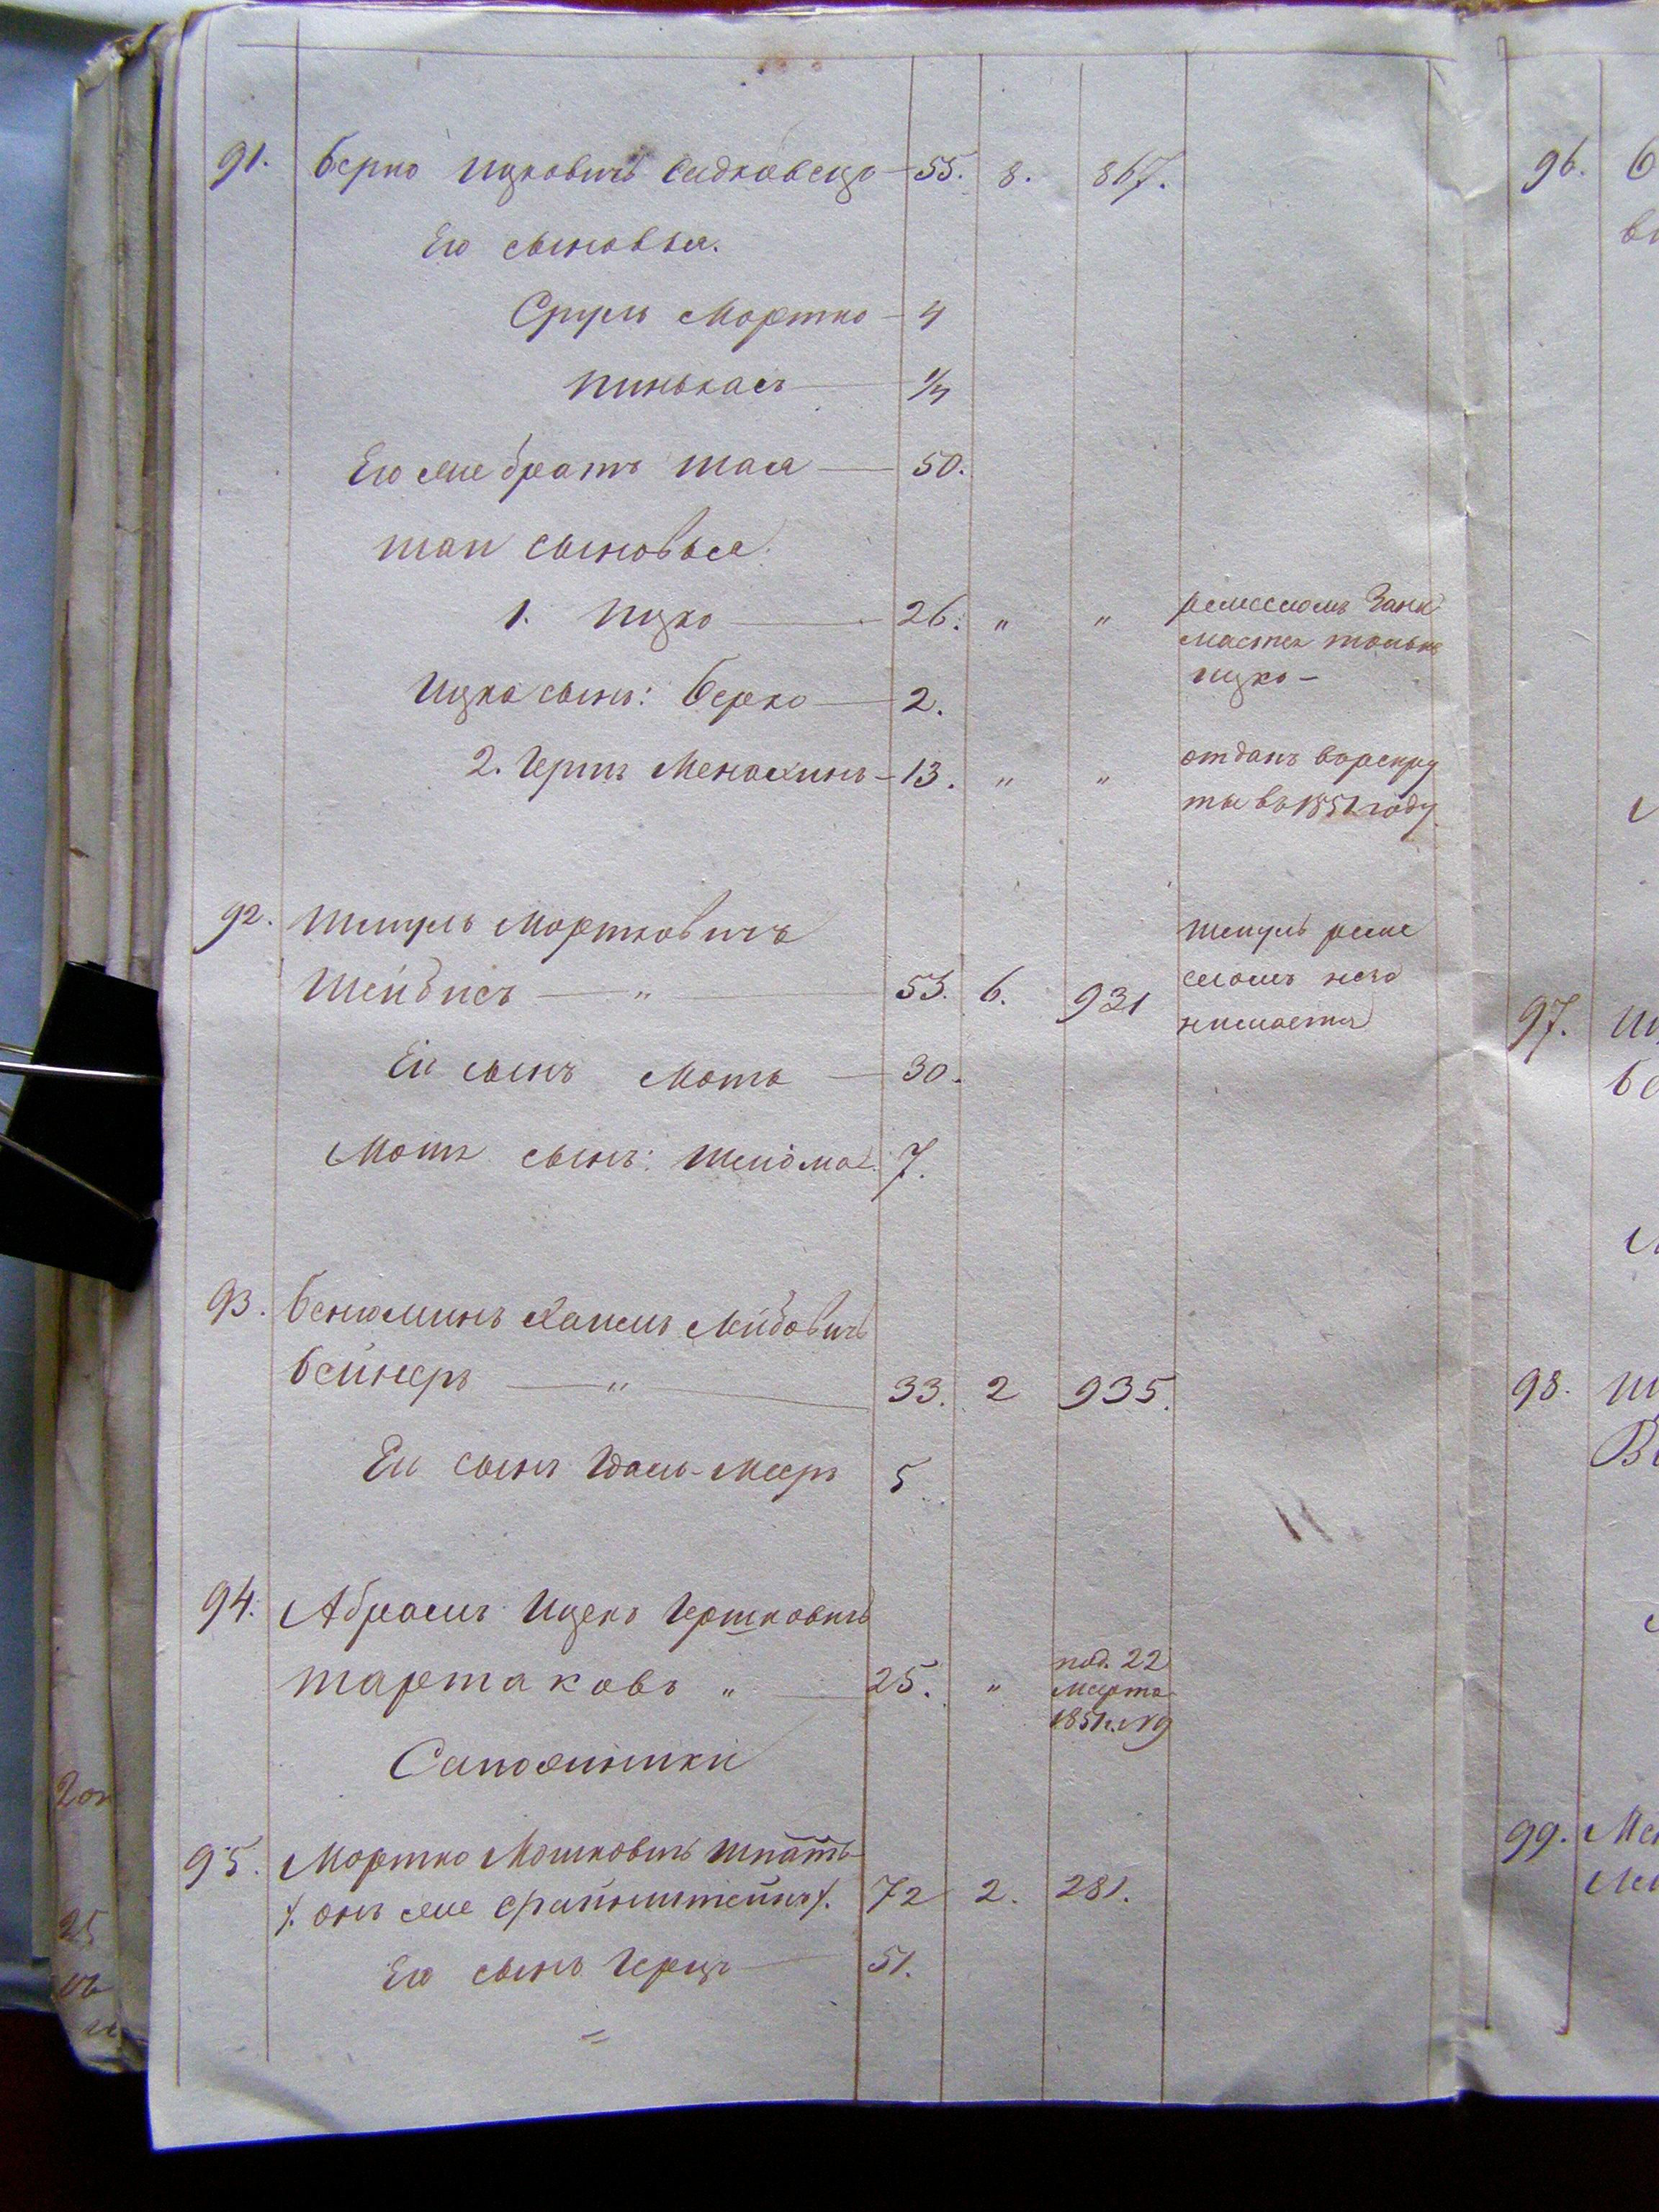 91. Берко Ицковичъ Садковецъ — 55. 8. 867.
Его сыновья.
Сруль Мортко — 4
Пинькасъ — 1/4
Его же братъ Шая — 50.
Шаи сыновья.
1. Ицко — 26. " " ремесломъ Зани
мается только
Ицко —
Ицка сынъ: Берко — 2.
2. Герш Менахинъ — 13. " " отданъ ворекру
ты въ 1851 году.
92. Шмуль Мортковичъ Шмуль реме
Шейбисъ — " — 53. 6. 931 сломъ не за
нимается
Его сынъ Мотя — 30.
Моти сынъ: Шлиома 7.
93. Бениоминъ Хаимъ Лейбовичъ
Бейнеръ — " — 33. 2 935.
Его сынъ Идель-Мееръ 5
94. Абрамъ Ицекъ Гершковичъ
Тартаковъ " — 25. " под. 22
Марта
1851 г. № 9
Сапожники
95. Мортко Мошковичъ Шпатъ
/. онъ же Файнштейнъ /. 72 2. 281.
Его сынъ Герцъ — 51.
96. Б
97.
98.
99. Ме